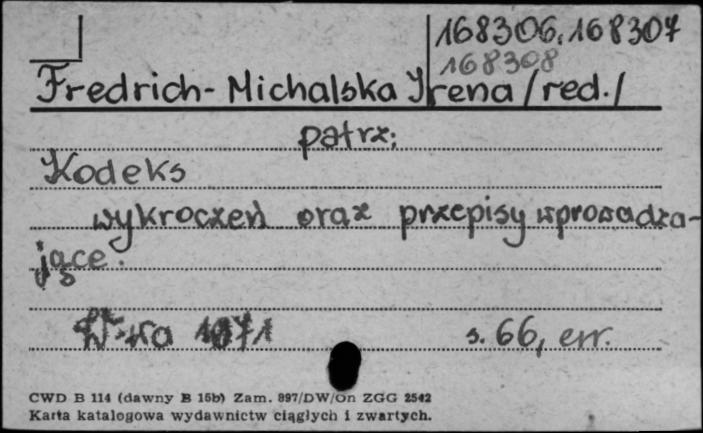 168306, 168307
168308
Fredrich-Michalska Irena /red./
patrz:
Kodeks
wykroczeń oraz przepisy wprowadza-
jące.
W-wa 1971 s. 66, err.
CWD B 114 (dawny B 15b) Zam. 897/DW/on ZGG 2542
Karta katalogowa wydawnictw ciągłych i zwartych.